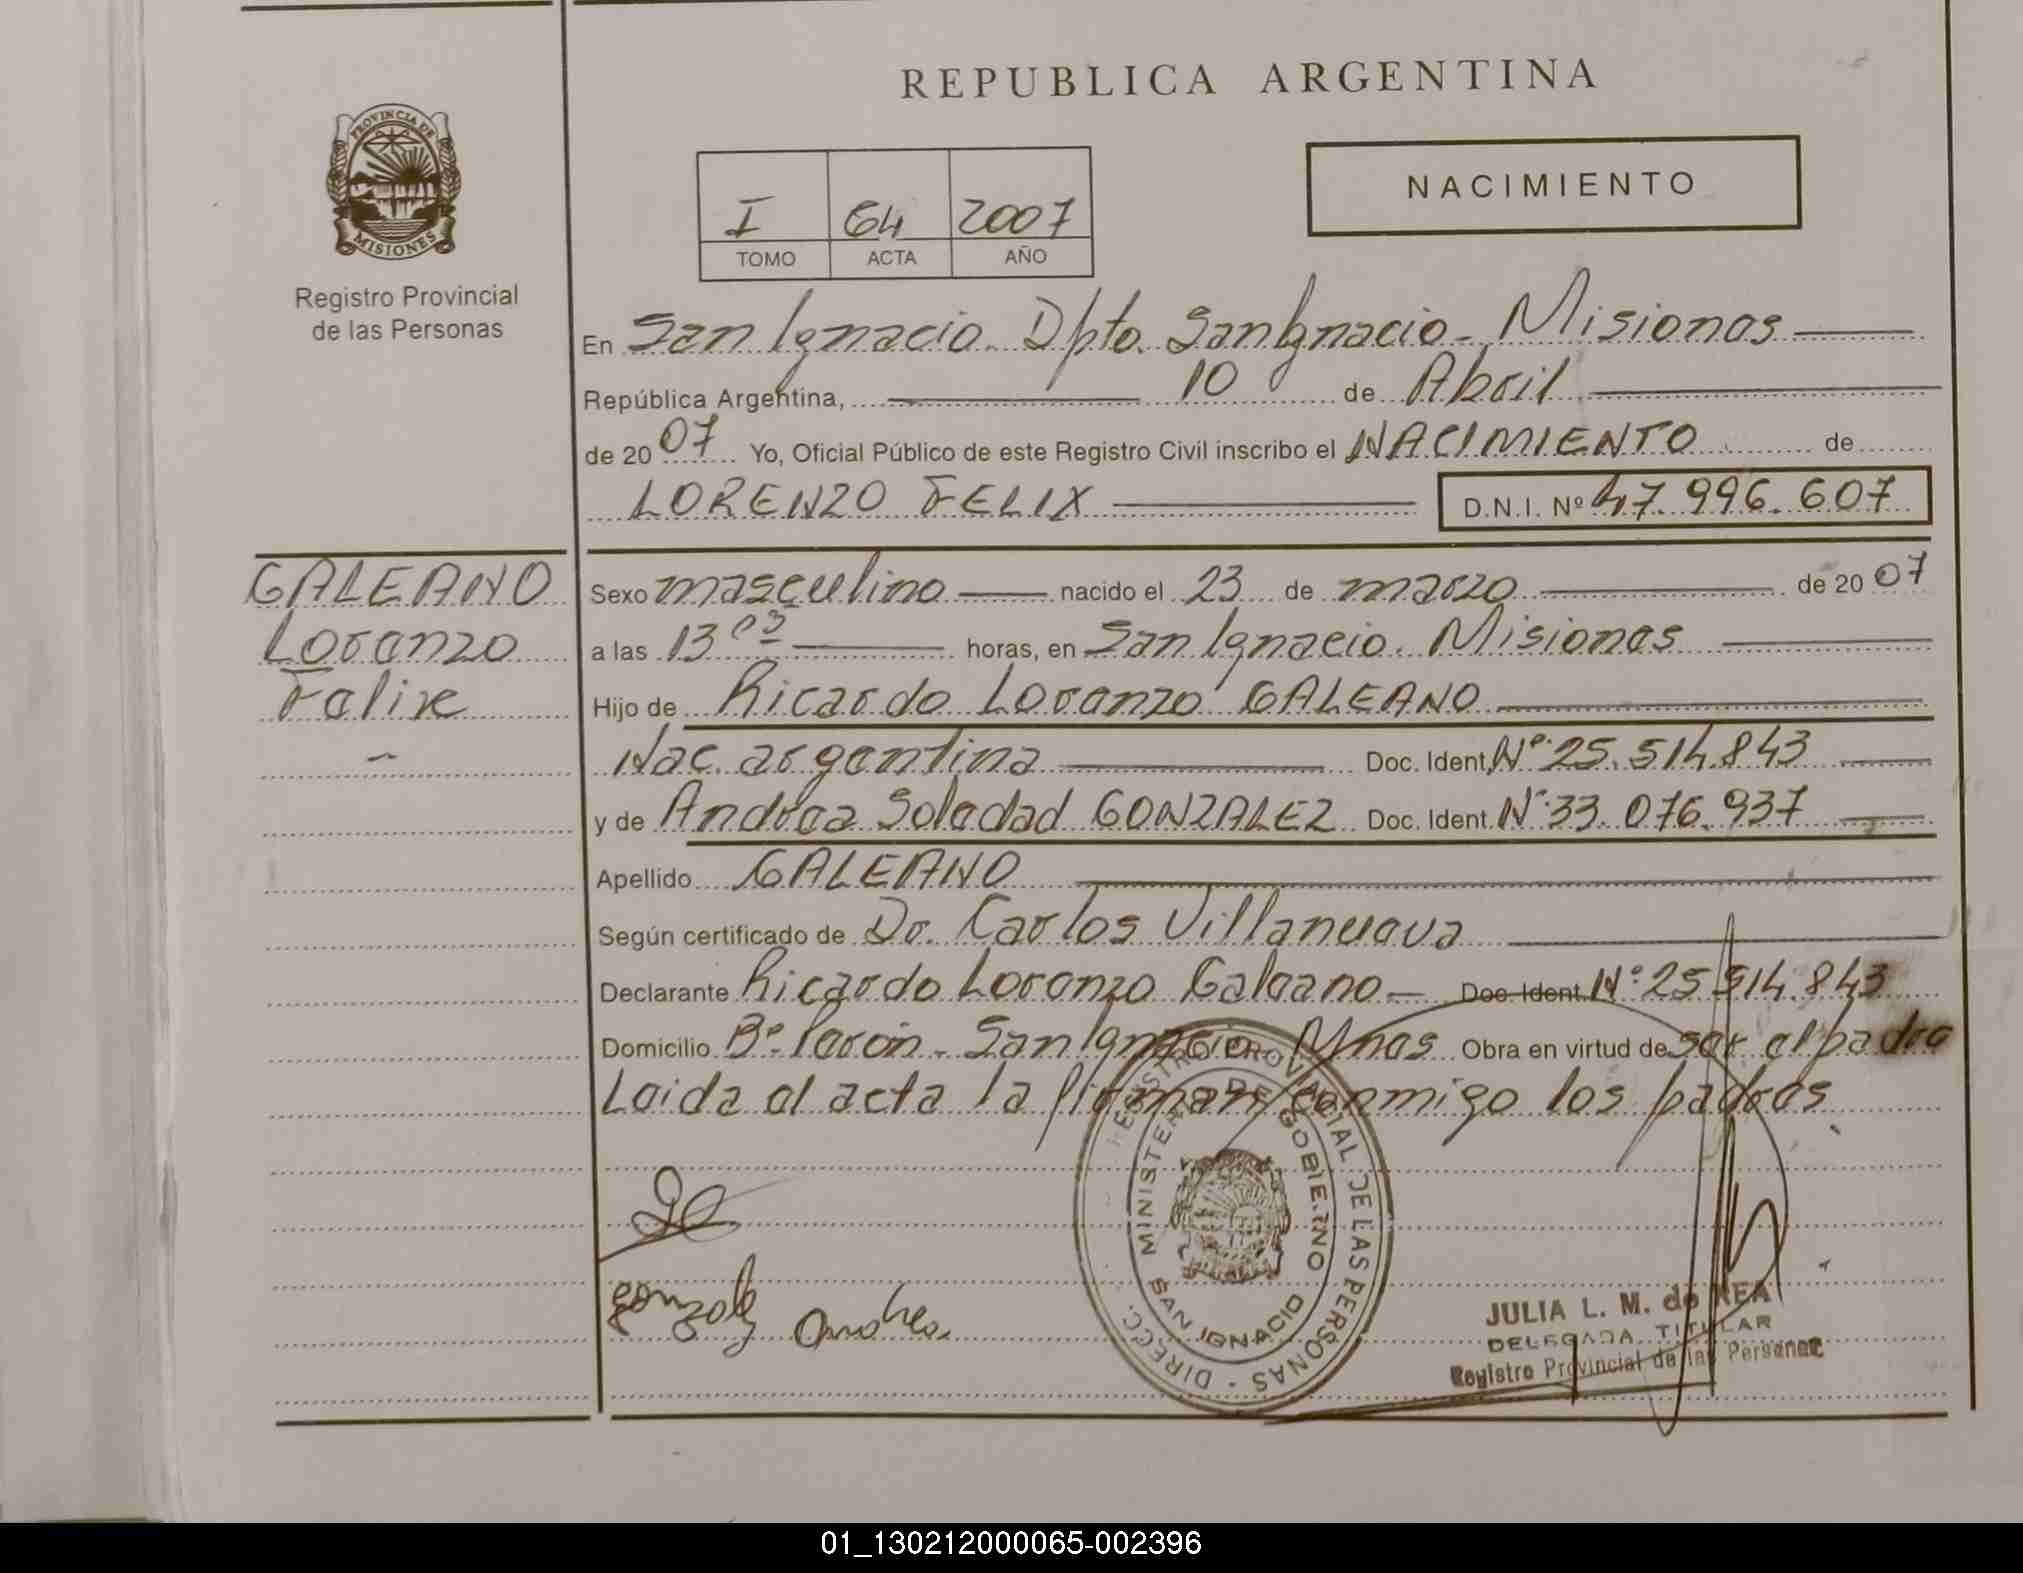 REPUBLICA ARGENTINA
PROVINCIA DE
MISIONES
Registro Provincial
de las Personas
I 64 2007
TOMO ACTA AÑO
NACIMIENTO
En San Ignacio. Dpto. San Ignacio - Misiones
República Argentina, 10 de Abril
de 2007 Yo, Oficial Público de este Registro Civil inscribo el NACIMIENTO de
LORENZO FELIX D.N.I. Nº 47.996.607
GALEANO
Lorenzo
Felix
Sexo masculino nacido el 23 de marzo de 2007
a las 13 horas, en San Ignacio. Misiones
Hijo de Ricardo Lorenzo GALEANO
Nac. argentina Doc. Ident. Nº 25.514.843
y de Andrea Soledad GONZALEZ Doc. Ident. Nº 33.076.937
Apellido GALEANO
Según certificado de Dr. Carlos Villanueva
Declarante Ricardo Lorenzo Galeano - Doc. Ident. Nº 25.514.843
Domicilio Bº Perón - San Ignacio Mnes Obra en virtud de ser el padre
Leida el acta la firman conmigo los padres
gonzalez Andrea
DIRECC. REGISTRO PROVINCIAL DE LAS PERSONAS -
MINISTERIO DE GOBIERNO
SAN IGNACIO
JULIA L. M. de REA
DELEGADA TITULAR
Registro Provincial de las Personas
01_130212000065-002396